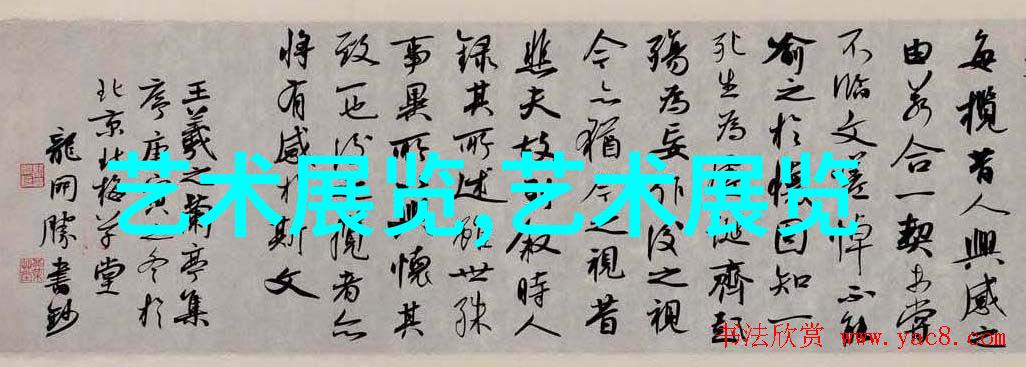 每攬昔人興感之
由若合一契未嘗
不臨文嗟悼不能
喻之於懷固知一
死生為虛誕齊彭
殤為妄作後之視
今亦猶今之視昔
悲夫故列叙時人
録其所述雖世殊
事異所以興懷其
致一也後之攬者亦
将有感於斯文
王羲之蘭亭集
序庚寅之冬於
北京北草堂
龍開勝書鈔
艺术展览,艺术展览
书法欣赏 www.yac8.com